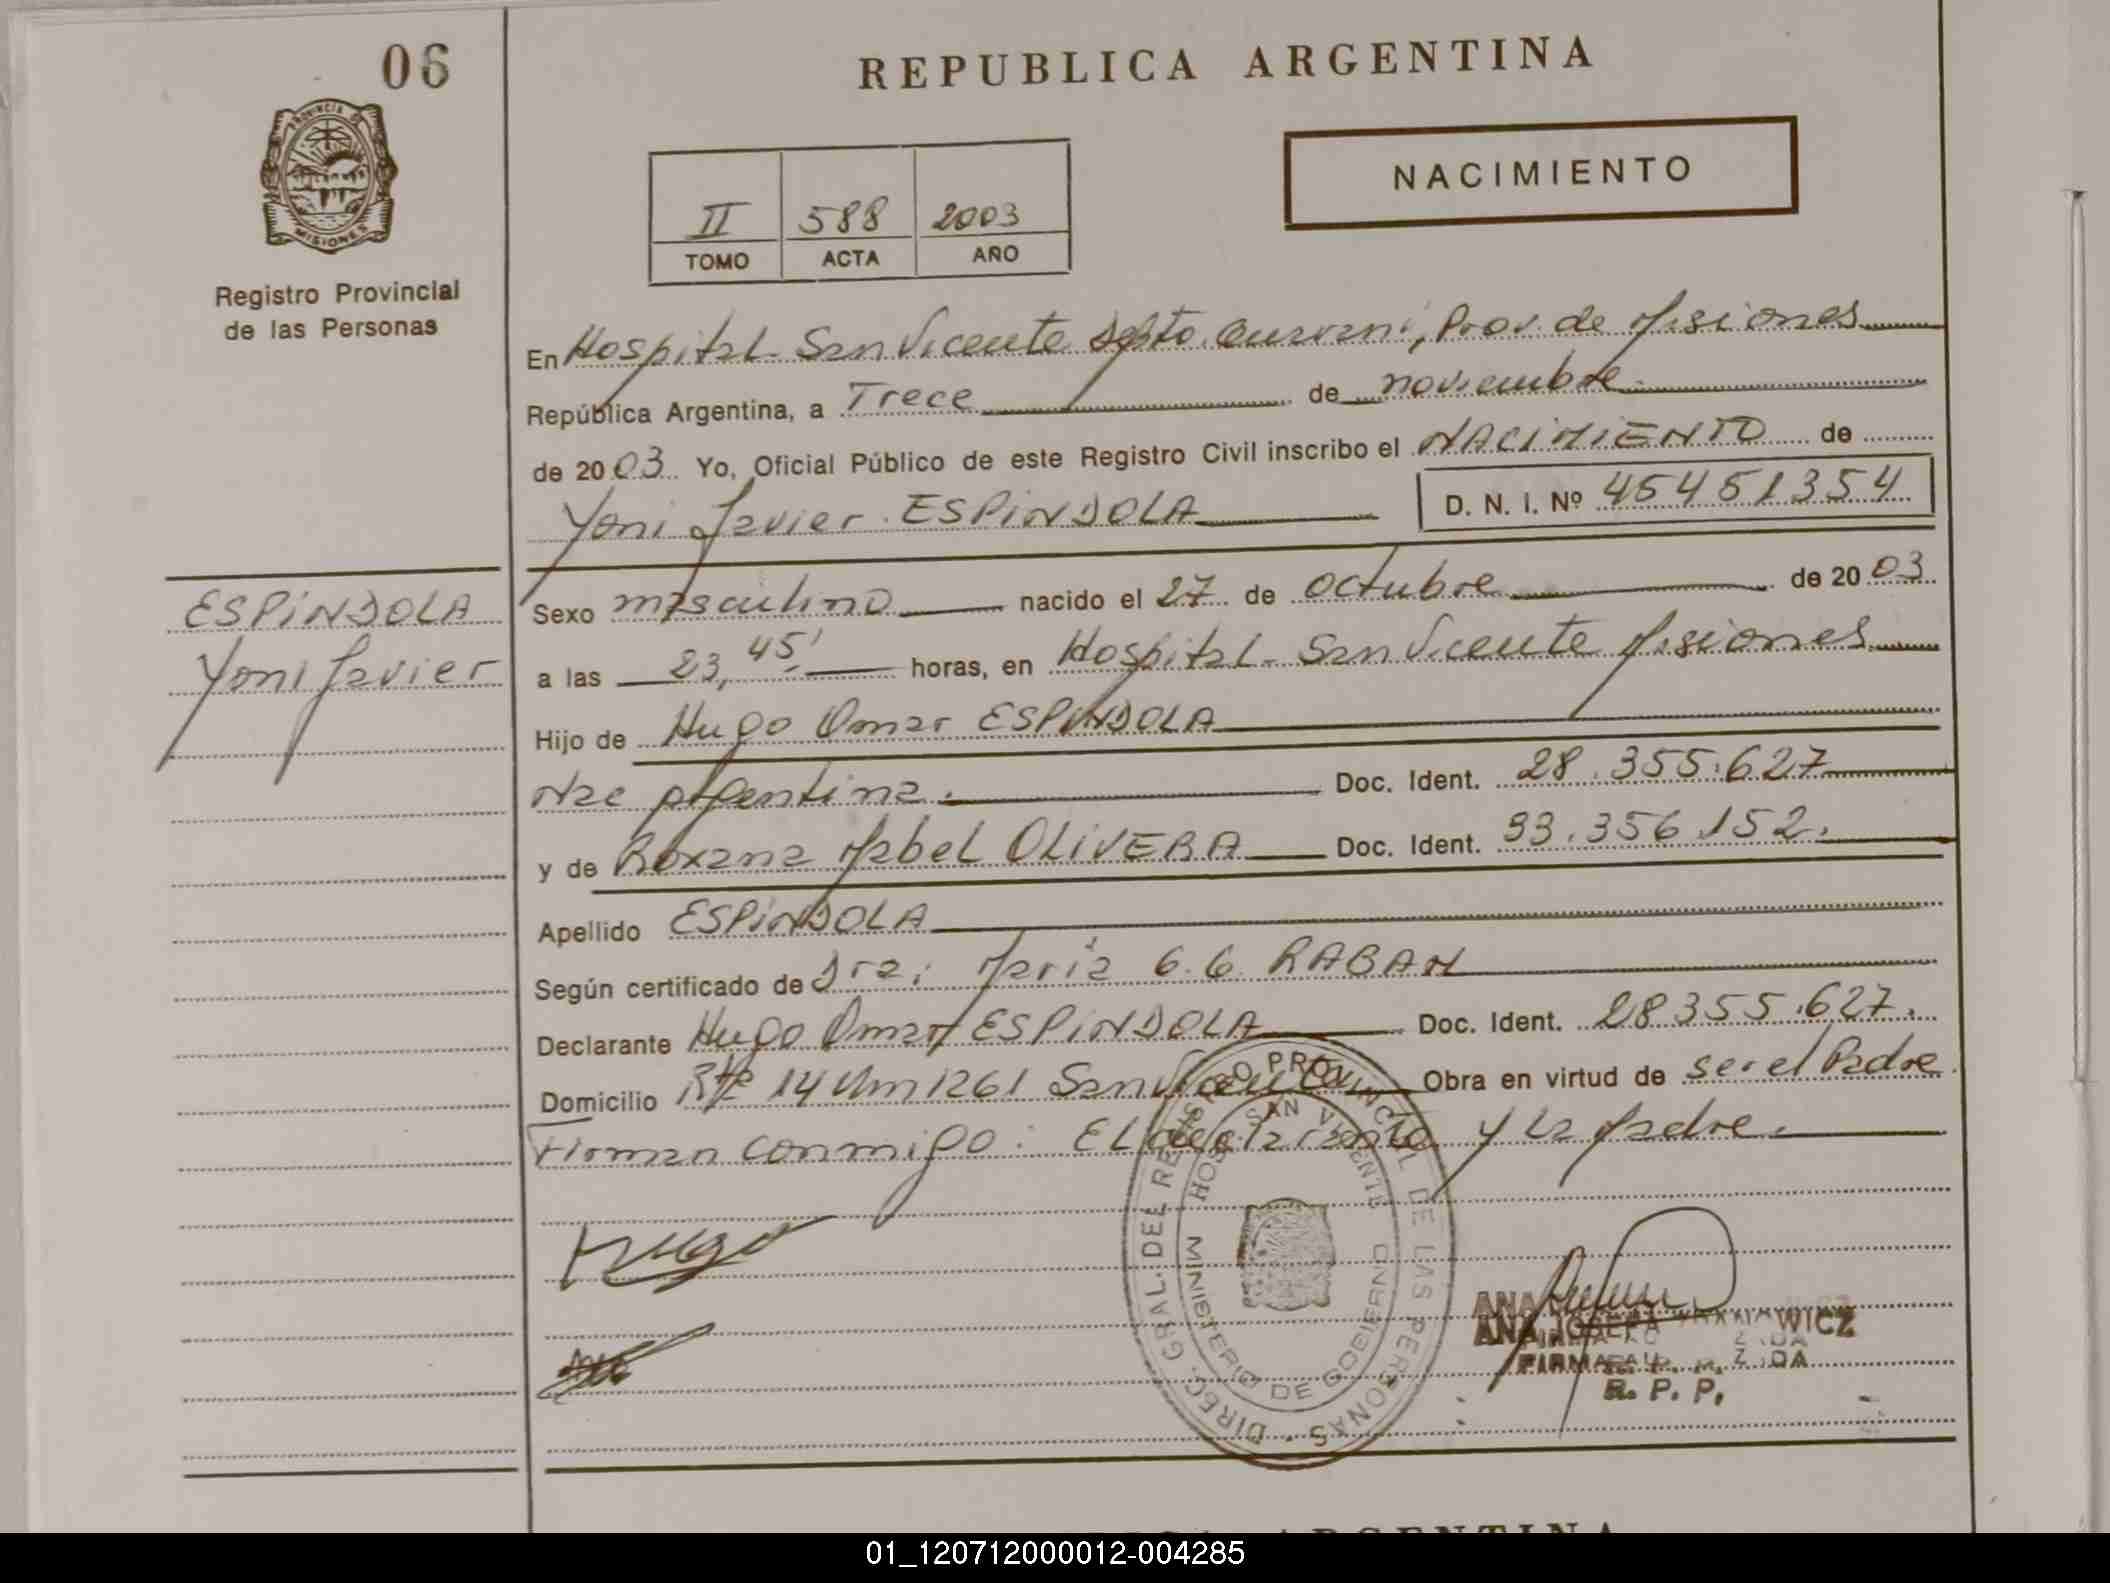 06
REPUBLICA ARGENTINA
PROVINCIA DE
MISIONES
NACIMIENTO
II 588 2003
TOMO ACTA AÑO
Registro Provincial
de las Personas
En Hospital - San Vicente Depto. Guarani, Prov. de Misiones
República Argentina, a Trece de noviembre
de 2003 Yo, Oficial Público de este Registro Civil inscribo el NACIMIENTO de
Yoni Javier ESPINDOLA D. N. I. Nº 45451354
ESPINDOLA
Yoni Javier
Sexo masculino nacido el 27 de octubre de 2003
a las 23,45' horas, en Hospital - San Vicente Misiones
Hijo de Hugo Omar ESPINDOLA
Nac Argentina. Doc. Ident. 28.355.627
y de Roxana Mabel OLIVERA Doc. Ident. 33.356.152.
Apellido ESPINDOLA
Según certificado de Dra: Maria G.G. RABAN
Declarante Hugo Omar ESPINDOLA Doc. Ident. 28355.627.
Domicilio Rta 14 Km 1261 San Vicente Obra en virtud de ser el Padre
Firman conmigo: El declarante y la Madre.
DIREC. GRAL. DEL REGISTRO PROVINCIAL DE LAS PERSONAS
HOSP. SAN VICENTE
MINISTERIO DE GOBIERNO
Hugo
ANA JOSEFA
R. P. P.
ARGENTINA
01_120712000012-004285